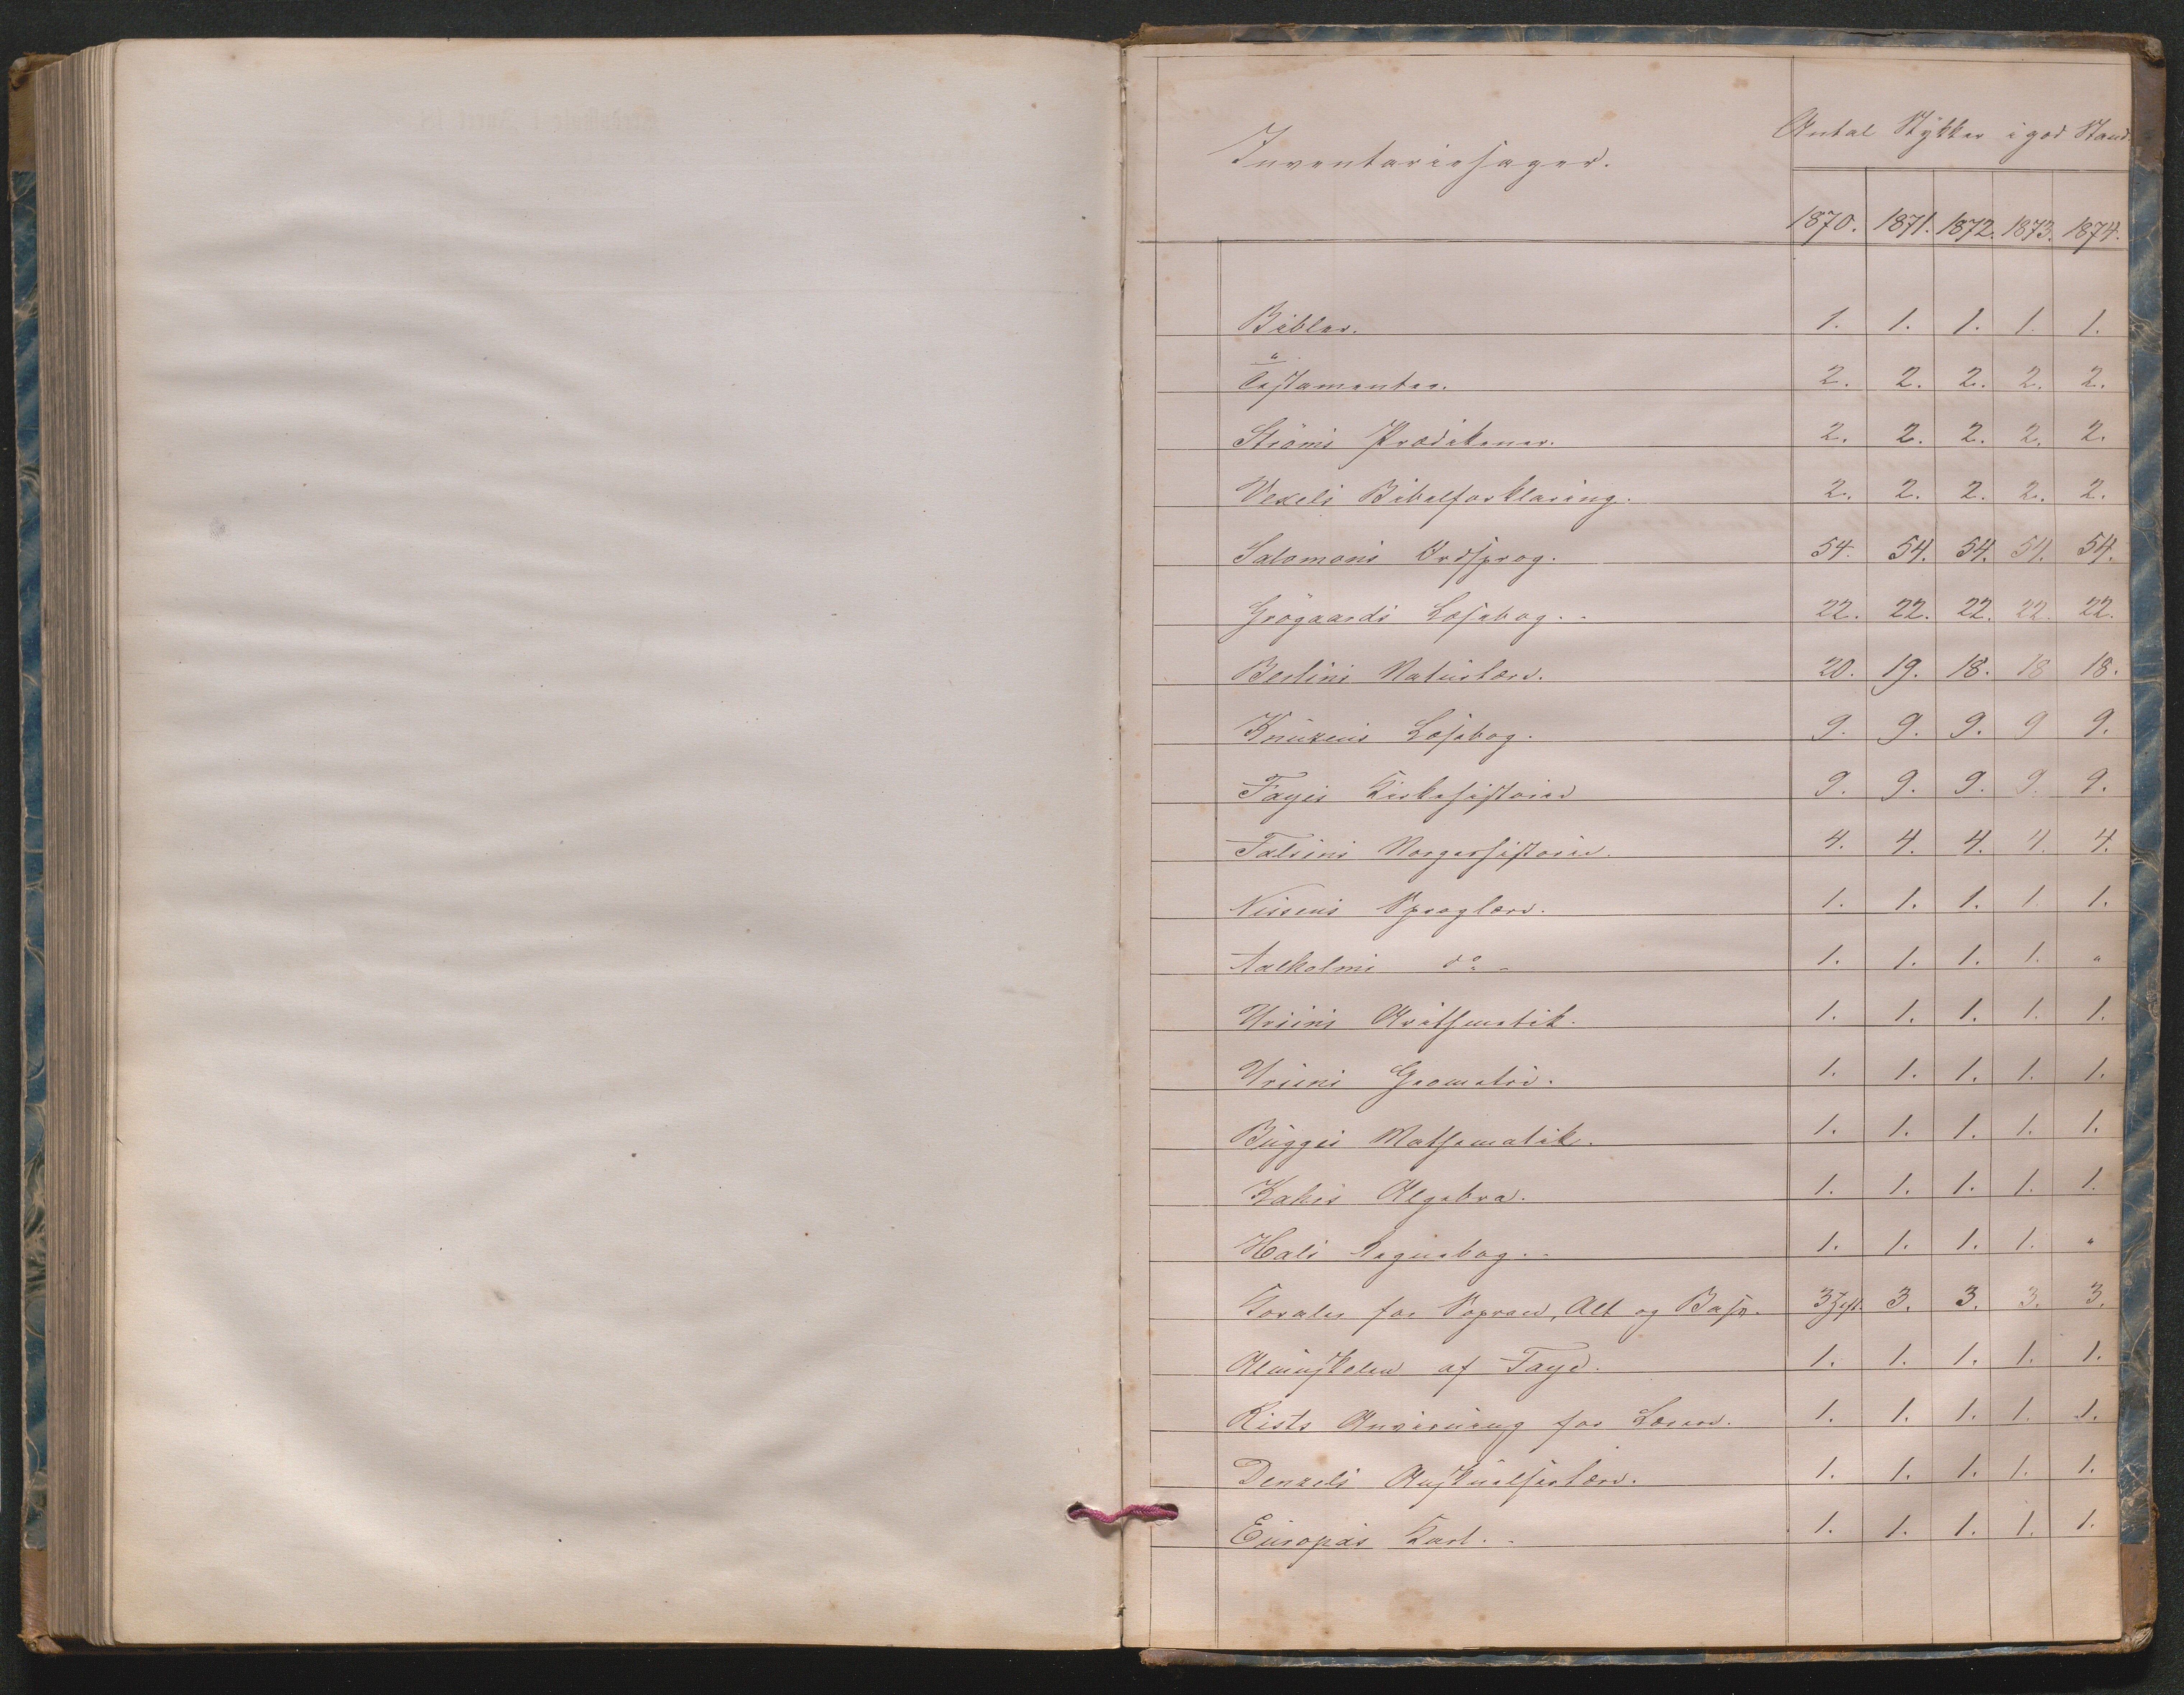 Inventariesager.
Antal Stykker i god Stand
1870. 1871. 1872. 1873. 1874.
Bibler. 1. 1. 1. 1. 1.
Testamenter. 2. 2. 2. 2. 2.
Ströms Prædikener. 2. 2. 2. 2. 2.
Vexels Bibelforklaring. 2. 2. 2. 2. 2.
Salomons Ordsprog. 54. 54. 54. 54. 54.
Grögaards Læsebog. 22. 22. 22. 22. 22.
Berlins Naturlære. 20. 19. 18. 18 18.
Knuzens Læsebog. 9. 9. 9. 9 9.
Fayes Kirkehistorie 9. 9. 9. 9. 9.
Falsens Norgeshistorie. 4. 4. 4. 4. 4.
Nissens Sproglære. 1. 1. 1. 1 1.
Aalholms do. 1. 1. 1. 1. "
Ursins Arithmetik. 1. 1. 1. 1. 1.
Ursins Geometri. 1. 1. 1. 1. 1.
Bugges Mathematik. 1. 1. 1. 1. 1.
Algebra. 1. 1. 1. 1. 1.
Regnebog. 1. 1. 1. 1. "
Koraler for Sopran, Alt og Bass. 3 Heft. 3. 3. 3. 3.
Almuskolen af Faye. 1. 1. 1. 1. 1.
Rists Anvisning for Lærere. 1. 1. 1. 1. 1.
Denzels Anskuelseslære. 1. 1. 1. 1. 1.
Europas Kart. 1. 1. 1. 1. 1.